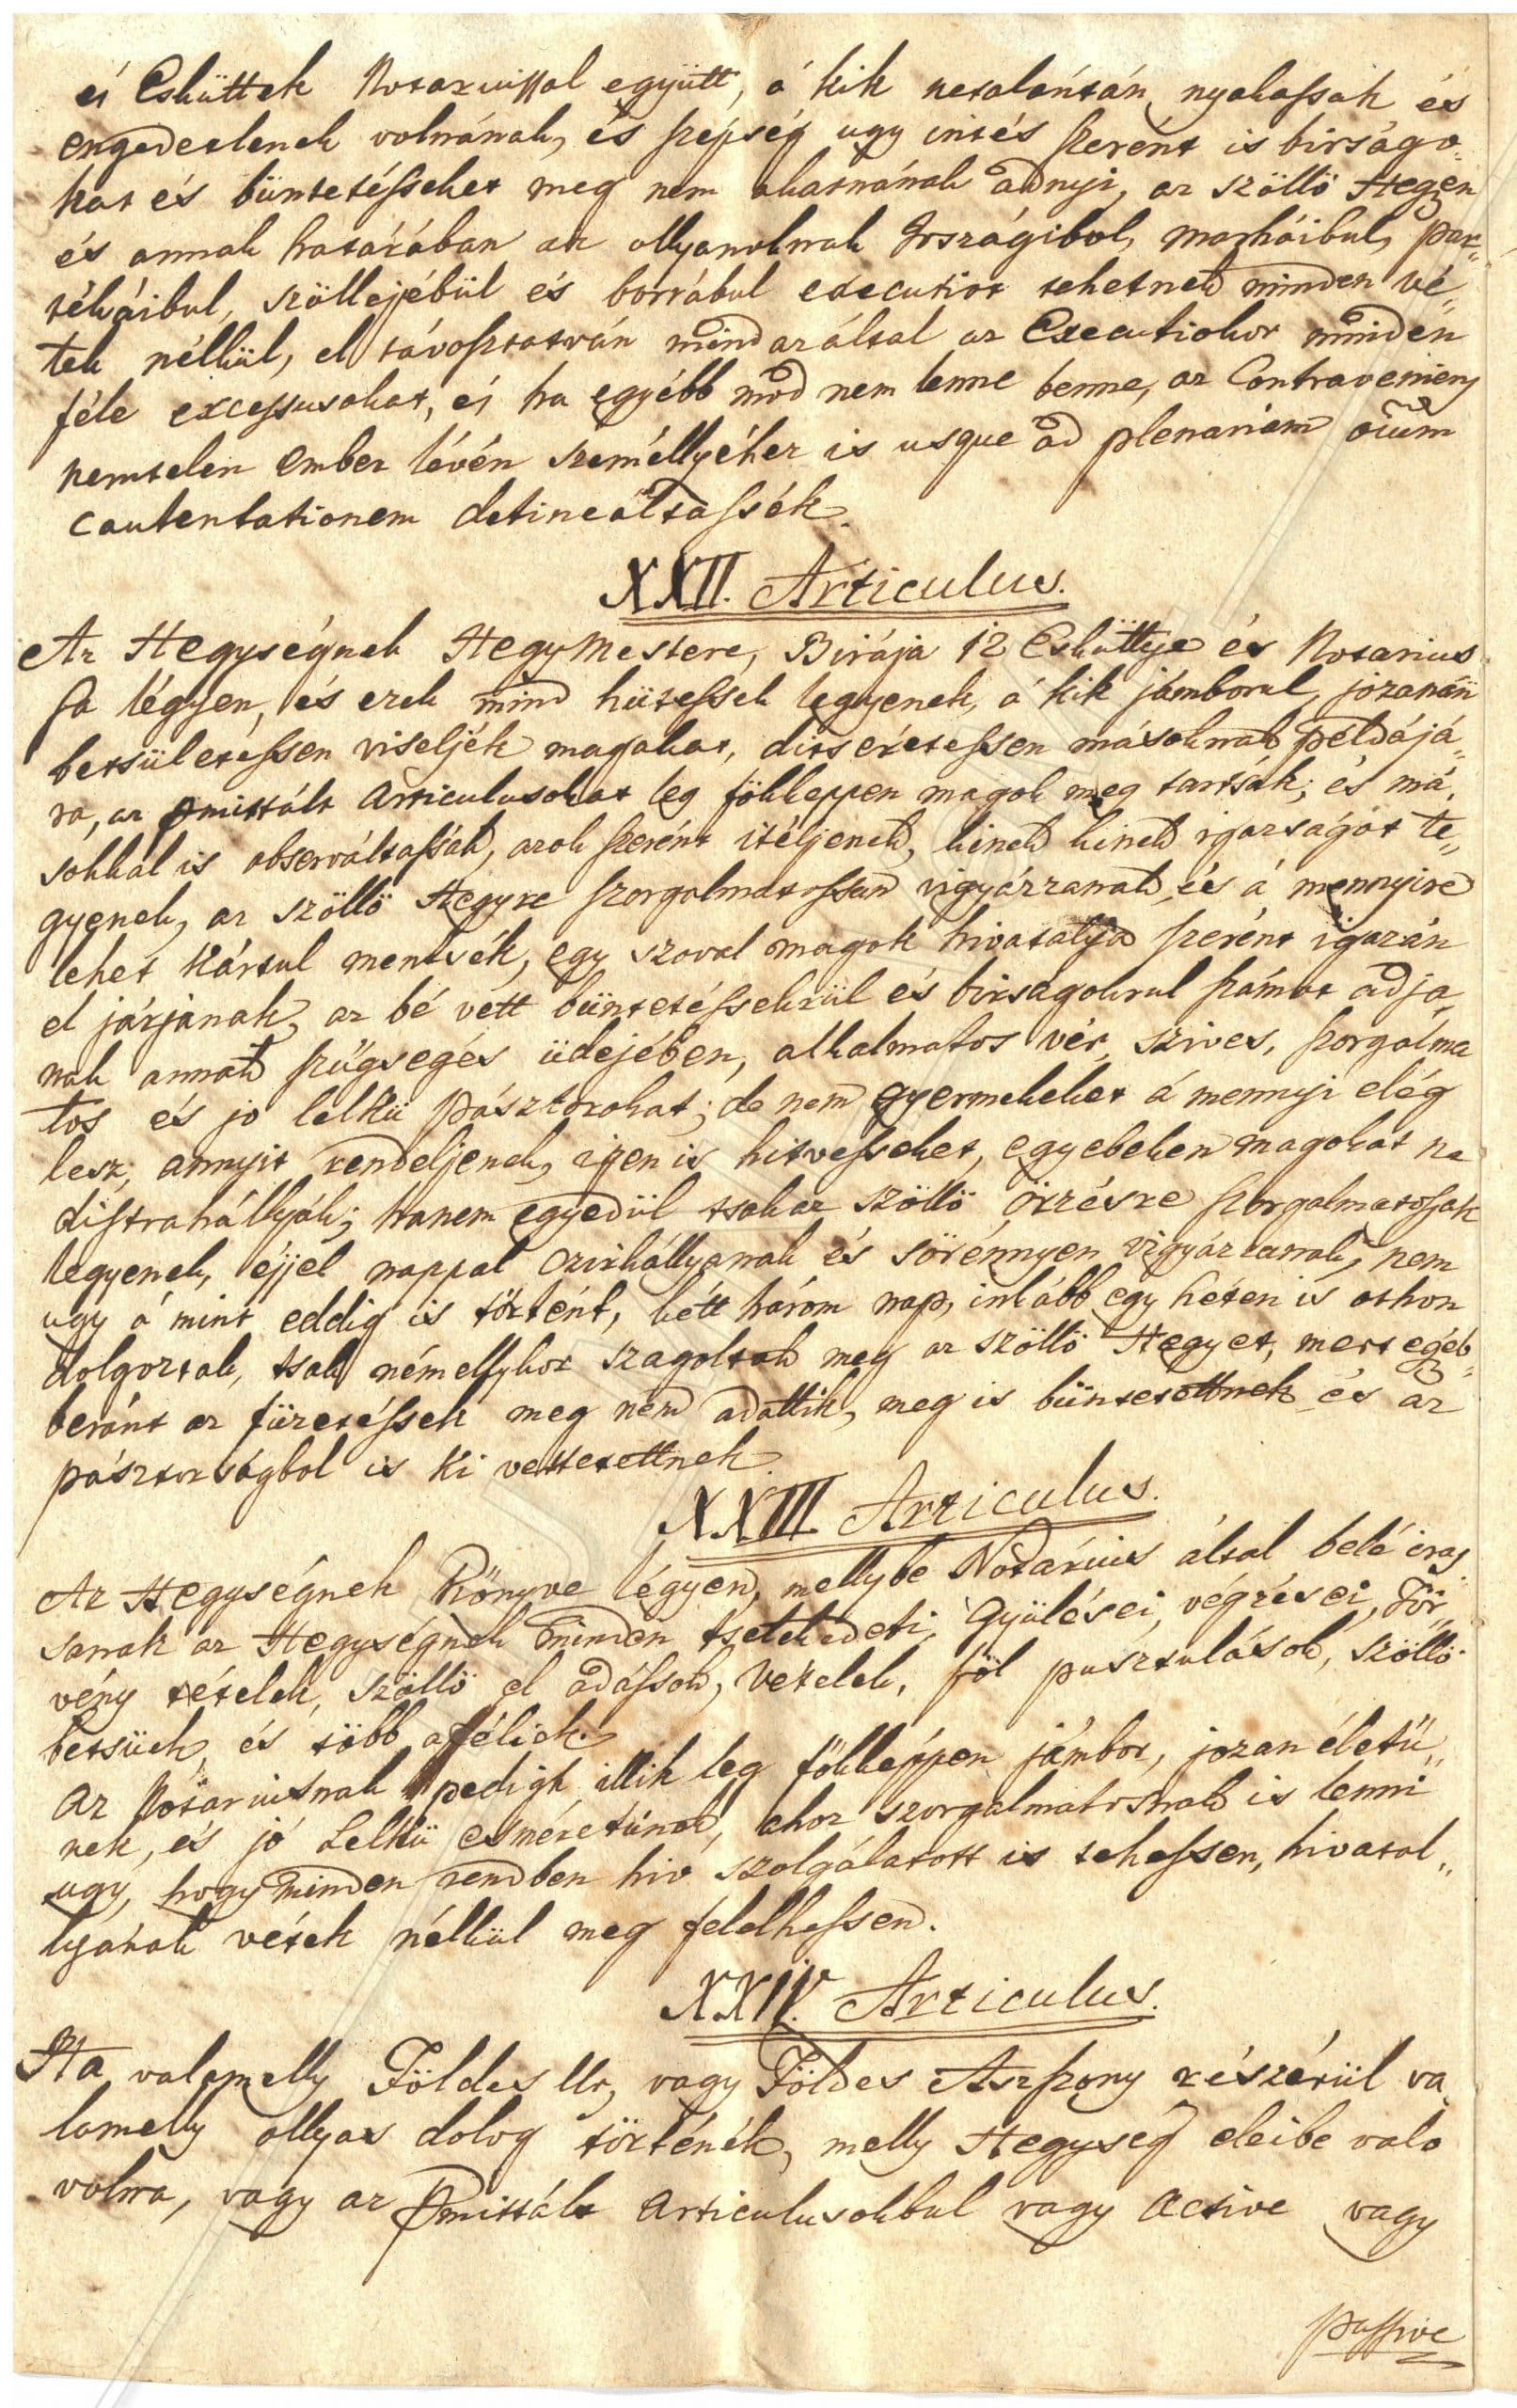 és Esküttek Notariussal együtt, á kik netalántán nyakassak és
engedetlenek volnának, és szépség ugy intés szerént is birságo„
kat és büntetésseket meg nem akarnának adnyi, az szöllö Hegyen
és annak határában az ollyanoknak Jószágibol, marháibul, por„
tékáibul, szöllejébül és borrábul executiot tehetnek minden vé„
tek nélkül, el távosztatván mindazáltal az Executiokor minden
féle excessusokat, és ha egyébb mód nem lenne benne, az Contraveniens
nemtelen Ember lévén személlyéhez is usque ad plenariam oium
contentationem detineáltassék.
XXII. Articulus.
Az Hegységnek HegyMestere, Birája 12 Esküttje és Notarius
sa légyen, és ezek mind hütessek legyenek, á kik jámborul, jozanan
betsületéssen viseljék magokat, ditséretessen másoknak példájá„
ra, az pmittált Articulusokat leg fökkeppen magok meg tartsák; és má„
sokkal is observáltassák, azok szerént itéljenek, kinek kinek igazságot te„
gyenek, az szöllö Hegyre szorgalmatossan vigyázzanak, és á mennyire
lehet kártul mentsék, egy szoval magok hivatalja szerént igazán
el járjanak, az bé vett büntetéssekrül és birságokrul számot adja„
nak annak szügségés üdejében, alkalmatos vér, szives, szorgalma
tos és jo lelkü Pásztorokat; de nem gyermekeket á mennyi elég
lesz, annyit rendeljenek, igen is hitvesseket, egyebeken magokat ne
distrahállyák; hanem egyedül tsak az szöllö örzésre szorgalmatossak
legyenek, éjjel nappal czirkállyanak és sörénnyen vigyázzanak, nem
ugy á mint eddig is történt, kétt három nap, inkább egy héten is othon
dolgoztak, tsak némellykor szagoltak meg az szöllö Hegyet, mert egéb„
beránt az füzetéssek meg nem adattik, meg is büntetettnek és az
pásztorságbol is ki vettetettnek.
XXIII. Articulus.
Az Hegységnek Könyve légyen, mellybe Notárius által belé iras
sanak az Hegységnek minden tselekedeti, Gyülései, végzései, Tör„
vény tételek, szöllö el adássok, Vételek, föl pusztulások, szöllö
betsüek, és több afélick.
Az Notariusnak pedigh illik leg fökképpen jámbor, jozan életü„
nek, és jó Lelkü esméretünek, ahoz szorgalmatosnak is lenni
ugy, hogy minden rendben hiv szolgálatott is tehessen, hivatal„
lyának vétek nélkül meg felelhessen.
XXIV. Articulus.
Ha valamelly Földes Ur, vagy Földes Aszszony részérül va„
lamelly ollyas dolog történék, melly Hegység eleibe valo
volna, vagy az Pmittált Articulusokbul vagy Active vagy
passive